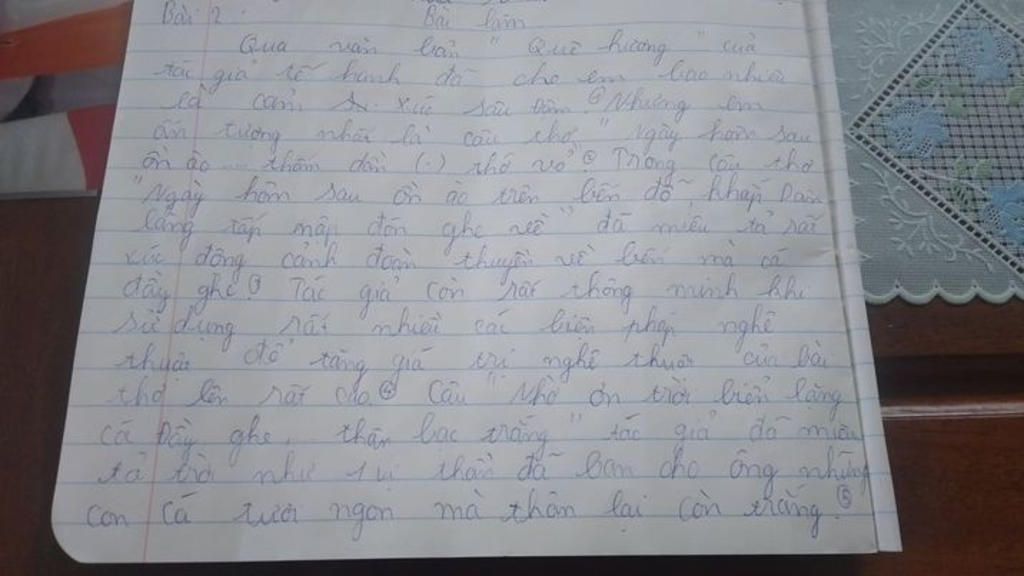 Bài 2. Bài làm
Qua văn bản " Quê hương " của
tác giả tế hanh đã cho em bao nhiêu
cảm xúc sâu đậm ① Nhưng em
ấn tượng nhất là câu thơ " Ngày hôm sau
ồn ào ... thấm dần (.) thớ vỏ" ② Trong câu thơ
"Ngày hôm sau ồn ào trên bến đỗ, khắp Dân
làng tấp nập đón ghe về" đã miêu tả rất
xúc động cảnh đoàn thuyền về bến mà cá
đầy ghe ③ Tác giả còn rất thông minh khi
sử dụng rất nhiều các biện pháp nghệ
thuật để tăng giá trị nghệ thuật của bài
thơ lên rất cao ④ Câu " Nhờ ơn trời biển lặng
cá Đầy ghe, thân bạc trắng " tác giả đã miêu
tả trời như vị thần đã ban cho ông những
con cá tươi ngon mà thân lại còn trắng ⑤